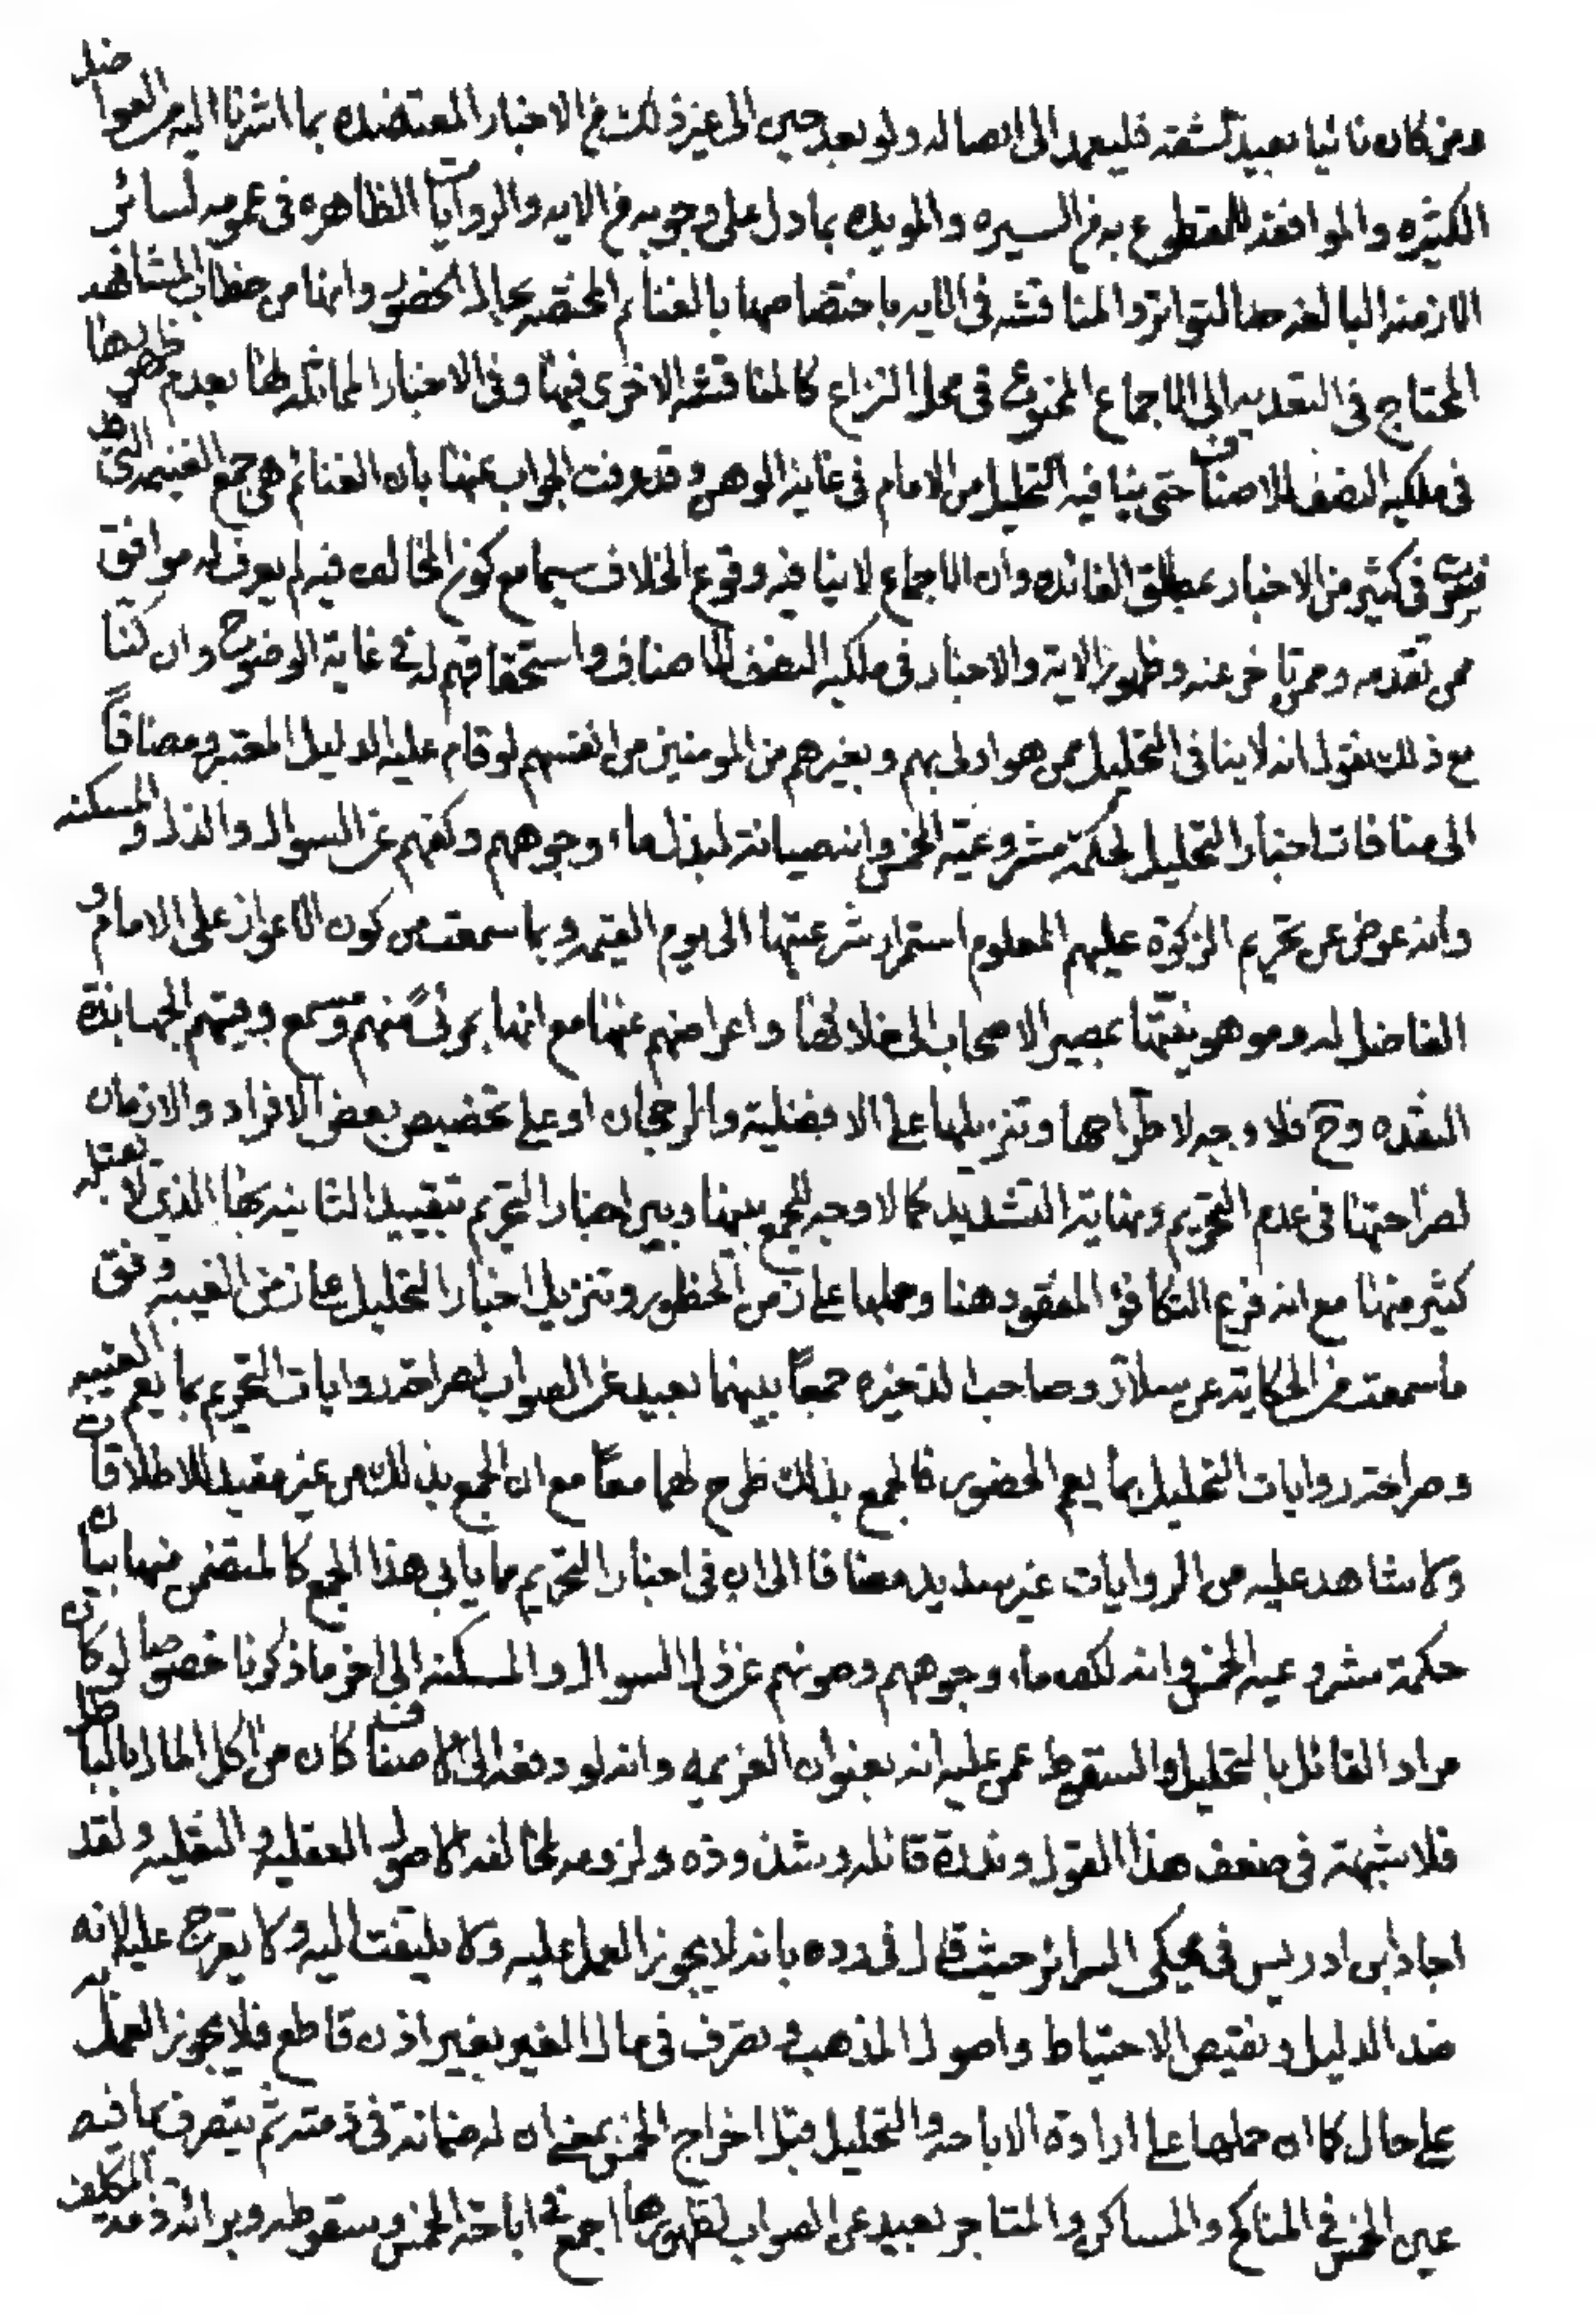 ومن كان نائيا بعيد الشقه فليعمد الى ايصاله ولو بعد حين الى غير ذلك من الاخبار المعتضده بما اشرنا اليه من العواضد
الكثيره والموافقه للمقطوع به من السيره والمويده بما دل على وجوبه من الايه والروايات الظاهره فى عمومه لسائر
الازمنه البالغه حد التواتر والمناقشه فى الايه باختصاصها بالغنائم المختصه بحال الحضور وانها من خطاب المشافهه
المحتاج فى التعديه الى الاجماع الممنوع فى محل النزاع كالمناقشه الاخرى فيها وفى الاخبار المماثله لها بعدم ظهورها
فى ملكيه النصف للاصناف حتى ينافيه التحليل من الامام فى غايه الوهن وقد عرفت الجواب عنها بان الغنائم هى جمع الغنيمه التى
فسرت فى كثير من الاخبار بمطلق الفائده وان الاجماع لا ينافيه وقوع الخلاف سيما مع كون المخالف فيه لم يعرف له موافق
ممن تقدمه وممن تاخر عنه وظهور الاية والاخبار فى ملكيه النصف للاصناف واستحقاقهم له فى غاية الوضوح وان كنا
مع ذلك نقول انه لا ينافى التحليل ممن هو اولى بهم وبغيرهم من المومنين من انفسهم لو قام عليه الدليل المعتبر ومضافاً
الى منافات اخبار التحليل لحكمة مشروعيّه الخمس وانه صيانة لبذل ماء وجوههم وكفهم عن السوال والذل والمسكنه
وانه عوض عن تحريم الزكوة عليهم المعلوم استمرار شرعيتها الى يوم القيمه وبما سمعت من كون الاعواز على الامام و
الفاضل له وموهونيّتها بمصير الاصحاب الى خلافها واعراضهم عنها مع انها بمرئىً منهم ومسمع وفيهم الجهابذة
النقده وح فلا وجه لاطّراحها وتنزيلها على الافضلية والرجحان او على تخصيص بعض الافراد والازمان
لصراحتها فى عدم التحريم ونهاية التشديد كما لا وجه للجمع بينها وبين اخبار التحريم بتقييد الثانيه بها الذى لا يقبله
كثير منها مع انه فرع التكافؤ المفقود هنا وحملها على زمن الحظور وتنزيل اخبار التحليل على زمن الغيبه وفق
ما سمعت من الحكاية عن سلار وصاحب الذخيره جمعاً بينهما بعيد عن الصواب لصراحة روايات التحريم بما يعم الغيبه
وصراحة روايات التحليل بما يعم الحضور فالجمع بذلك طرح لهما معاً مع ان الجمع بذلك من غير مقيد للاطلاقات
ولا شاهد عليه من الروايات غير سديد مضافا الى ان فى اخبار التحريم ما يابى هذا الجمع كالمتضمن منها بيان
حكمة مشروعيه الخمس وانه لكف ماء وجوههم وصونهم عن ذل السوال والمسكنه الى اخر ما ذكرنا خصوصا لو كان
مراد القائل بالتحليل والسقوط عمن عليه انه بعنوان العزيمه وانه لو دفعه الى الاصناف كان من اكل المال بالباطل
فلا شبهة فى ضعف هذا القول وندرة قائله وشذوذه ولزومه لمخالفه الاصول العقليه والنقليه ولقد
اجاد ابن ادريس فى محكى السرائر حيث قال فى رده بانه لا يجوز العمل عليه ولا يلتفت اليه ولا يعرج عليه لانه
ضد الدليل ونقيض الاحتياط واصول المذهب وتصرف فى مال الغير بغير اذن قاطع فلا يجوز العمل به
على حال كما ان حملها على ارادة الاباحه والتحليل قبل اخراج الخمس بمعنى ان له ضمانة فى ذمته ثم يتصرف بما فيه
عين الخمس فى المناكح والمساكن والمتاجر بعيد عن الصواب لظهورها اجمع فى اباحة الخمس وسقوطه وبرائة ذمه المكلف